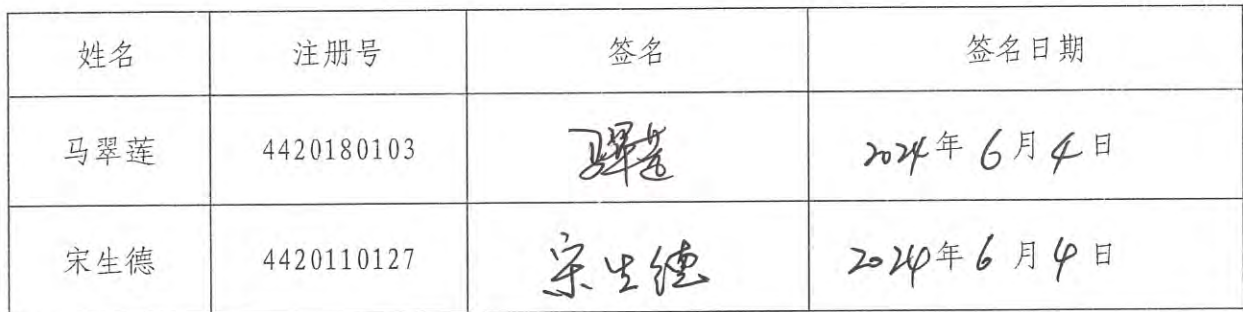 姓名 注册号 签名 签名日期
马翠莲 4420180103 马翠莲 2024年6月4日
宋生德 4420110127 宋生德 2024年6月4日